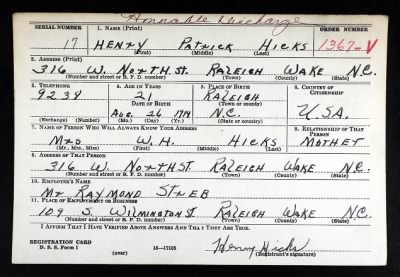 Honorable Discharge
SERIAL NUMBER 1. NAME (Print) ORDER NUMBER
17 HENRY PATRICK HICKS 1367-V
(First) (Middle) (Last)
2. ADDRESS (Print)
316 W. NORTH ST. RALEIGH WAKE N.C.
(Number and street or R. F. D. number) (Town) (County) (State)
3. TELEPHONE 4. AGE IN YEARS 5. PLACE OF BIRTH 6. COUNTRY OF CITIZENSHIP
9238 21 RALEIGH
DATE OF BIRTH (Town or county)
AUG. 26 1919 N.C. U.S.A.
(Exchange) (Number) (Mo.) (Day) (Yr.) (State or country)
7. NAME OF PERSON WHO WILL ALWAYS KNOW YOUR ADDRESS 8. RELATIONSHIP OF THAT PERSON
MRS W. H. HICKS MOTHER
(Mr., Mrs., Miss) (First) (Middle) (Last)
9. ADDRESS OF THAT PERSON
316 W. NORTH ST. RALEIGH WAKE N.C.
(Number and street or R. F. D. number) (Town) (County) (State)
10. EMPLOYER'S NAME
MR RAYMOND STREB
11. PLACE OF EMPLOYMENT OR BUSINESS
109 S. WILMINGTON ST. RALEIGH WAKE N.C.
(Number and street or R. F. D. number) (Town) (County) (State)
I AFFIRM THAT I HAVE VERIFIED ABOVE ANSWERS AND THAT THEY ARE TRUE.
REGISTRATION CARD
D. S. S. Form 1 (over) 16-17105 Henry Hicks
(Registrant's signature)